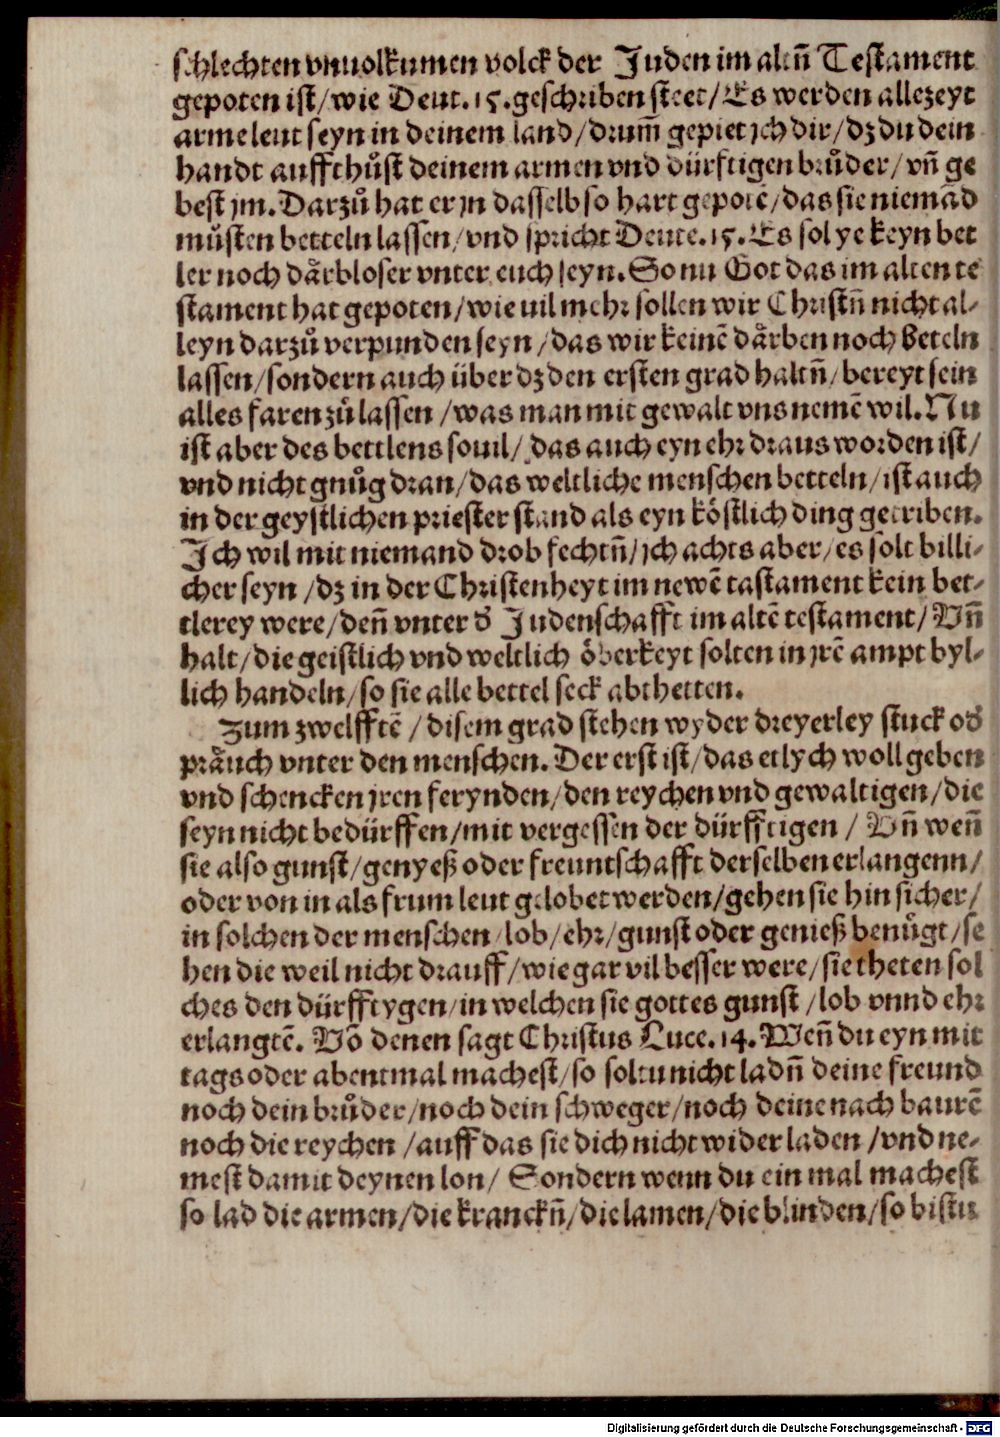 schlechten vnuolkumen volck der Juden im altñ Testament
gepoten ist/wie Deut.15.geschriben steet/Es werden allezeyt
arme leut seyn in deinem land/drum̃ gepiet jch dir/dz du dein
handt auffthůst deinem armen vnd dürftigen brůder/vñ ge
best jm.Darzů hat er jn dasselb so hart gepotẽ/das sie niemãd
můsten betteln lassen/vnd spricht Deute.15.Es sol ye keyn bet
ler noch dårbloser vnter euch seyn.So nu Got das im alten te
stament hat gepoten/wie uil mehr sollen wir Christñ nicht al-
leyn darzů verpunden seyn/das wir keinẽ dårben noch beteln
lassen/sondern auch über dz den ersten grad haltñ/bereyt sein
alles faren zů lassen/was man mit gewalt vns nemẽ wil.Nu
ist aber des bettlens souil/das auch eyn ehr draus worden ist/
vnd nicht gnůg dran/das weltliche menschen betteln/ist auch
in der geystlichen priester stand als eyn köstlich ding getriben.
Ich wil mit niemand drob fechtñ/jch achts aber/es solt billi-
cher seyn/dz in der Christenheyt im newẽ tastament kein bet-
tlerey were/deñ vnter d᷑ Judenschafft im altẽ testament/Vñ
halt/die geistlich vnd weltlich öberkeyt solten in jrẽ ampt byl-
lich handeln/so sie alle bettel seck abthetten.
Zum zwelfftẽ/disem grad stehen wyder dreyerley stuck od᷑
pråuch vnter den menschen.Der erst ist/das etlych woll geben
vnd schencken jren ferynden/den reychen vnd gewaltigen/die
seyn nicht bedürffen/mit vergessen der dürfftigen/Vñ weñ
sie also gunst/genyeß oder freuntschafft derselben erlangenn/
oder von in als frum leut gelobet werden/gehen sie hin sicher/
in solchen der menschen lob/ehr/gunst oder genieß benůgt/se
hen die weil nicht drauff/wie gar vil besser were/sie theten sol
ches den dürfftygen/in welchen sie gottes gunst/lob vnnd ehr
erlangtẽ. Võ denen sagt Christus Luce.14.Weñ du eyn mit
tags oder abentmal machest/so soltu nicht ladñ deine freund
noch dein brůder/noch dein schweger/noch deine nach baurẽ
noch die reychen/auff das sie dich nicht wider laden/vnd ne-
mest damit deynen lon/Sondern wenn du ein mal machest
so lad die armen/die kranckñ/die lamen/die blinden/so bistu
Digitalisierung gefördert durch die Deutsche Forschungsgemeinschaft - DFG